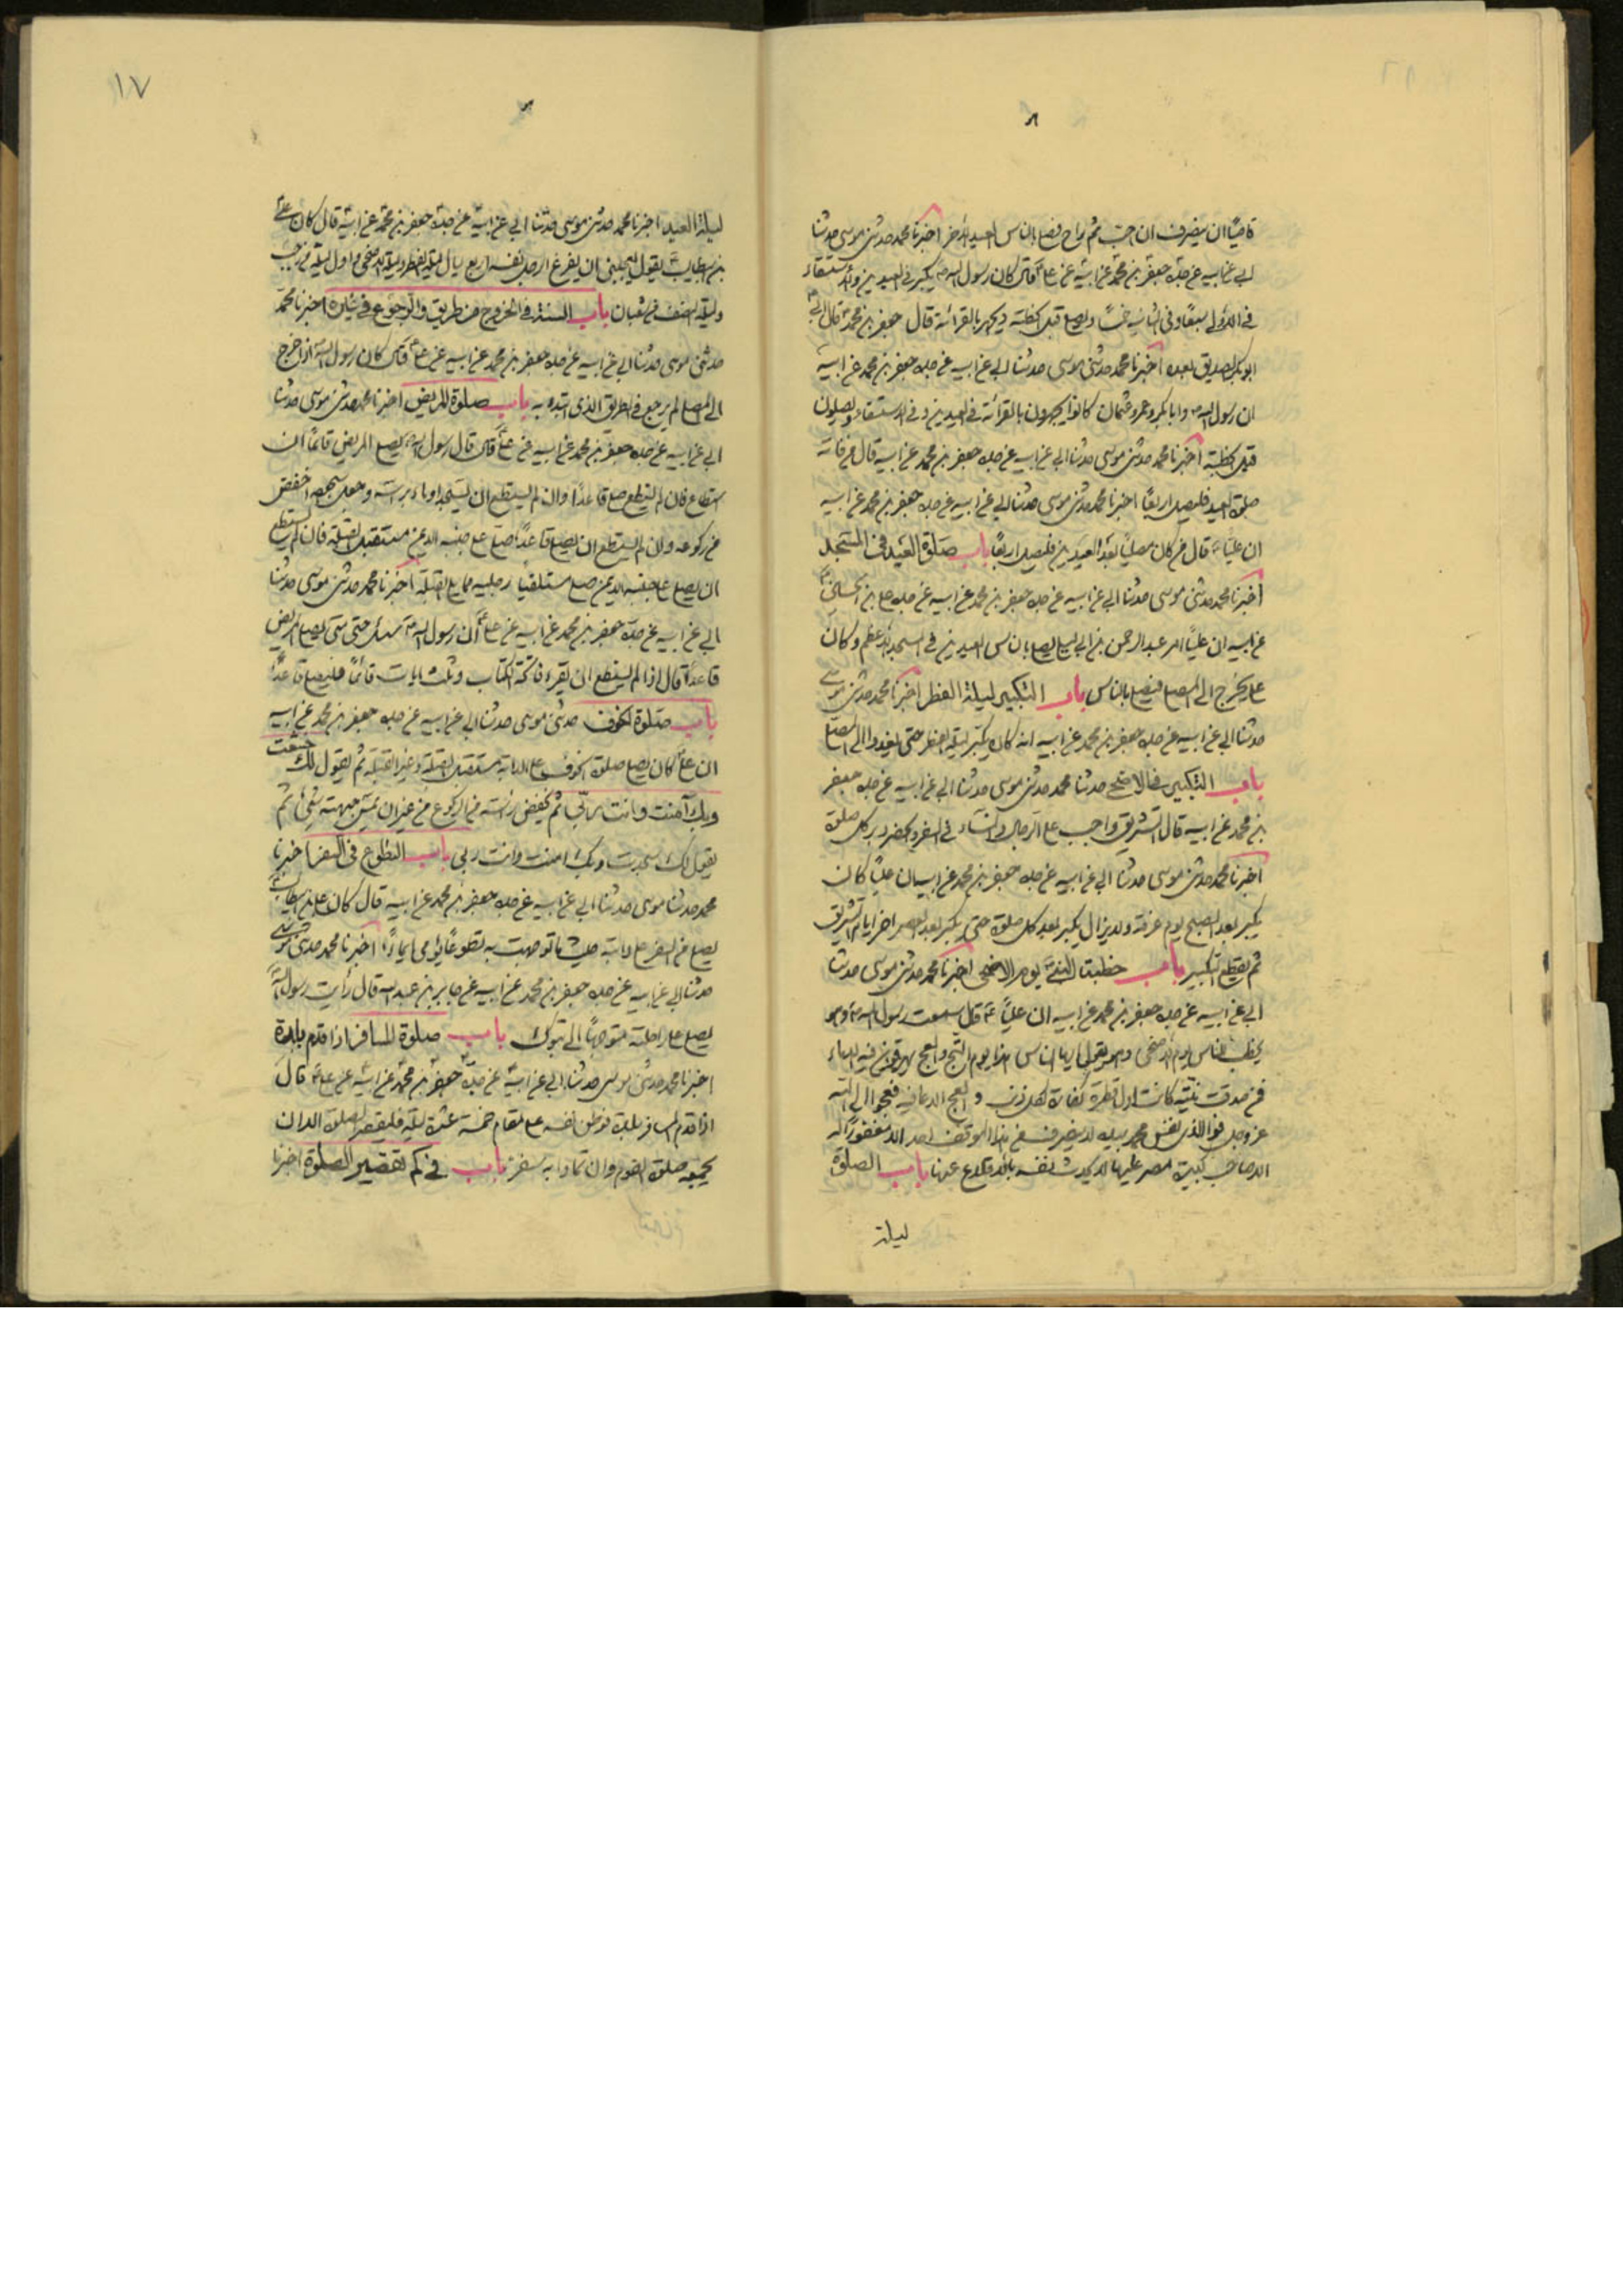 قاصيًا ان ينصرف ان احب ثم راح فصلى بالناس العيد الآخر اخبرنا محمد حدثنى موسى حدثنا
ابى عن ابيه عن جده جعفر بن محمد عن ابيه عن على ع قال كان رسول الله ص يكبر فى العيدين والاستسقاء
فى الاولى سبعًا وفى الثانية خمسًا ويصلى قبل الخطبة ويجهر بالقرائة قال جعفر بن محمد ع قال ابى ع
ابوبكر الصديق بعده اخبرنا محمد حدثنى موسى حدثنا ابى عن ابيه عن جده جعفر بن محمد عن ابيه
ان رسول الله ص وابابكر وعمر وعثمان كانوا يجهرون بالقرائة فى العيدين وفى الاستسقاء ويصلون
قبل الخطبة اخبرنا محمد حدثنى موسى حدثنا ابى عن ابيه عن جده جعفر بن محمد عن ابيه قال من فاتته
صلوة العيد فليصل اربعًا اخبرنا محمد حدثنى موسى حدثنا ابى عن ابيه عن جده جعفر بن محمد عن ابيه
ان عليًا ع قال من كان مصليًا بعد العيدين فليصل اربعًا باب صلوة العيد فى المسجد
اخبرنا محمد حدثنى موسى حدثنا ابى عن ابيه عن جده جعفر بن محمد عن ابيه عن جده على بن الحسين ع
عن ابيه ان عليًا امر عبد الرحمن بن ابى ليلى يصلى بالناس العيدين فى المسجد الاعظم وكان
على يخرج الى المصلى فيصلى بالناس باب التكبير ليلة الفطر اخبرنا محمد حدثنى موسى
حدثنا ابى عن ابيه عن جده جعفر بن محمد عن ابيه انه كان يكبر ليلة الفطر حتى يغدوا الى المصلى
باب التكبير فى الاضحى حدثنا محمد حدثنى موسى حدثنا ابى عن ابيه عن جده جعفر
بن محمد عن ابيه قال التشريق واجب على الرجال والنساء فى السفر والحضر دبر كل صلوة
اخبرنا محمد حدثنى موسى حدثنا ابى عن ابيه عن جده جعفر بن محمد عن ابيه ان عليًا كان
يكبر بعد الصبح يوم عرفة ولا يزال يكبر بعد كل صلوة حتى يكبر بعد العصر اخر ايام التشريق
ثم يقطع التكبير باب خطبة النبى يوم الاضحى اخبرنا محمد حدثنى موسى حدثنا
ابى عن ابيه عن جده جعفر بن محمد عن ابيه ان عليًا ع قال سمعت رسول الله ص وهو
يخطب الناس يوم الاضحى وهو يقول يا ايها الناس هذا يوم الثج والعج تهرقون فيه الدماء
فمن صدقت نيته كانت اول قطرة كفارة لكل ذنب والعج الدعاء فيه فعجوا الى الله
عز وجل فوالذى نفس محمد بيده لا ينصرف من هذا الموقف احد الا مغفورًا له
الا صاحب كبيرة مصر عليها لا يحدث نفسه بالاقلاع عنها باب الصلوة
ليلة
١٧
ليلة العيد اخبرنا محمد حدثنى موسى حدثنا ابى عن ابيه عن جده جعفر بن محمد عن ابيه قال كان على
بن ابيطالب ع يقول يعجبنى ان يفرغ الرجل نفسه اربع ليال ليلة الفطر وليلة الاضحى واول ليلة من رجب
وليلة النصف من شعبان باب السنة فى الخروج من طريق والرجوع فى غيره اخبرنا محمد
حدثنى موسى حدثنا ابى عن ابيه عن جده جعفر بن محمد عن ابيه عن على ع قال كان رسول الله اذا خرج
الى المصلى لم يرجع فى الطريق الذى ابتدء به باب صلوة المريض اخبرنا محمد حدثنى موسى حدثنا
ابى عن ابيه عن جده جعفر بن محمد عن ابيه عن على ع قال قال رسول الله يصلى المريض قائمًا ان
استطاع فان لم يستطع صلى قاعدًا وان لم يستطع ان يسجد اوماء براسه وجعل سجوده اخفض
من ركوعه وان لم يستطع ان يصلى قاعدًا صلى على جنبه الايمن مستقبل القبلة فان لم يستطع
ان يصلى على جنبه الايمن صلى مستلقيا رجليه مما يلى القبلة اخبرنا محمد حدثنى موسى حدثنا
ابى عن ابيه عن جده جعفر بن محمد عن ابيه عن على ع ان رسول الله ص سئل حتى متى يصلى المريض
قاعدًا قال اذا لم يستطع ان يقرء فاتحة الكتاب وثلث ايات قائمًا فليصل قاعدًا
باب صلوة الخوف حدثنى موسى حدثنا ابى عن ابيه عن جده جعفر بن محمد عن ابيه
ان على ع كان يصلى صلوة الخوف على الدابة مستقبل القبلة وغير القبلة ثم يقول لك خشعت
وبك آمنت وانت ربى ثم يخفض راسه من الركوع من غير ان يمس جبهته شئ ثم
يقول لك سجدت وبك امنت وانت ربى باب التطوع فى السفر اخبرنا
محمد حدثنا موسى حدثنا ابى عن ابيه عن جده جعفر بن محمد عن ابيه قال كان على بن ابيطالب ع
يصلى فى السفر على دابته حيث ما توجهت به تطوعًا يومى ايماءً اخبرنا محمد حدثنى موسى
حدثنا ابى عن ابيه عن جده جعفر بن محمد عن ابيه عن جابر بن عبد الله قال رأيت رسول الله
يصلى على راحلته متوجهًا الى تبوك باب صلوة المسافر اذا قدم بلدة
اخبرنا محمد حدثنى موسى حدثنا ابى عن ابيه عن جده جعفر بن محمد عن ابيه عن على ع قال
اذا قدم المسافر بلدة فوطن نفسه على مقام خمسة عشرة ليلة فليقصر الصلوة الا ان
يجمعه صلوة القوم وان تمادا به سفره باب فى كم تقصير الصلوة اخبرنا